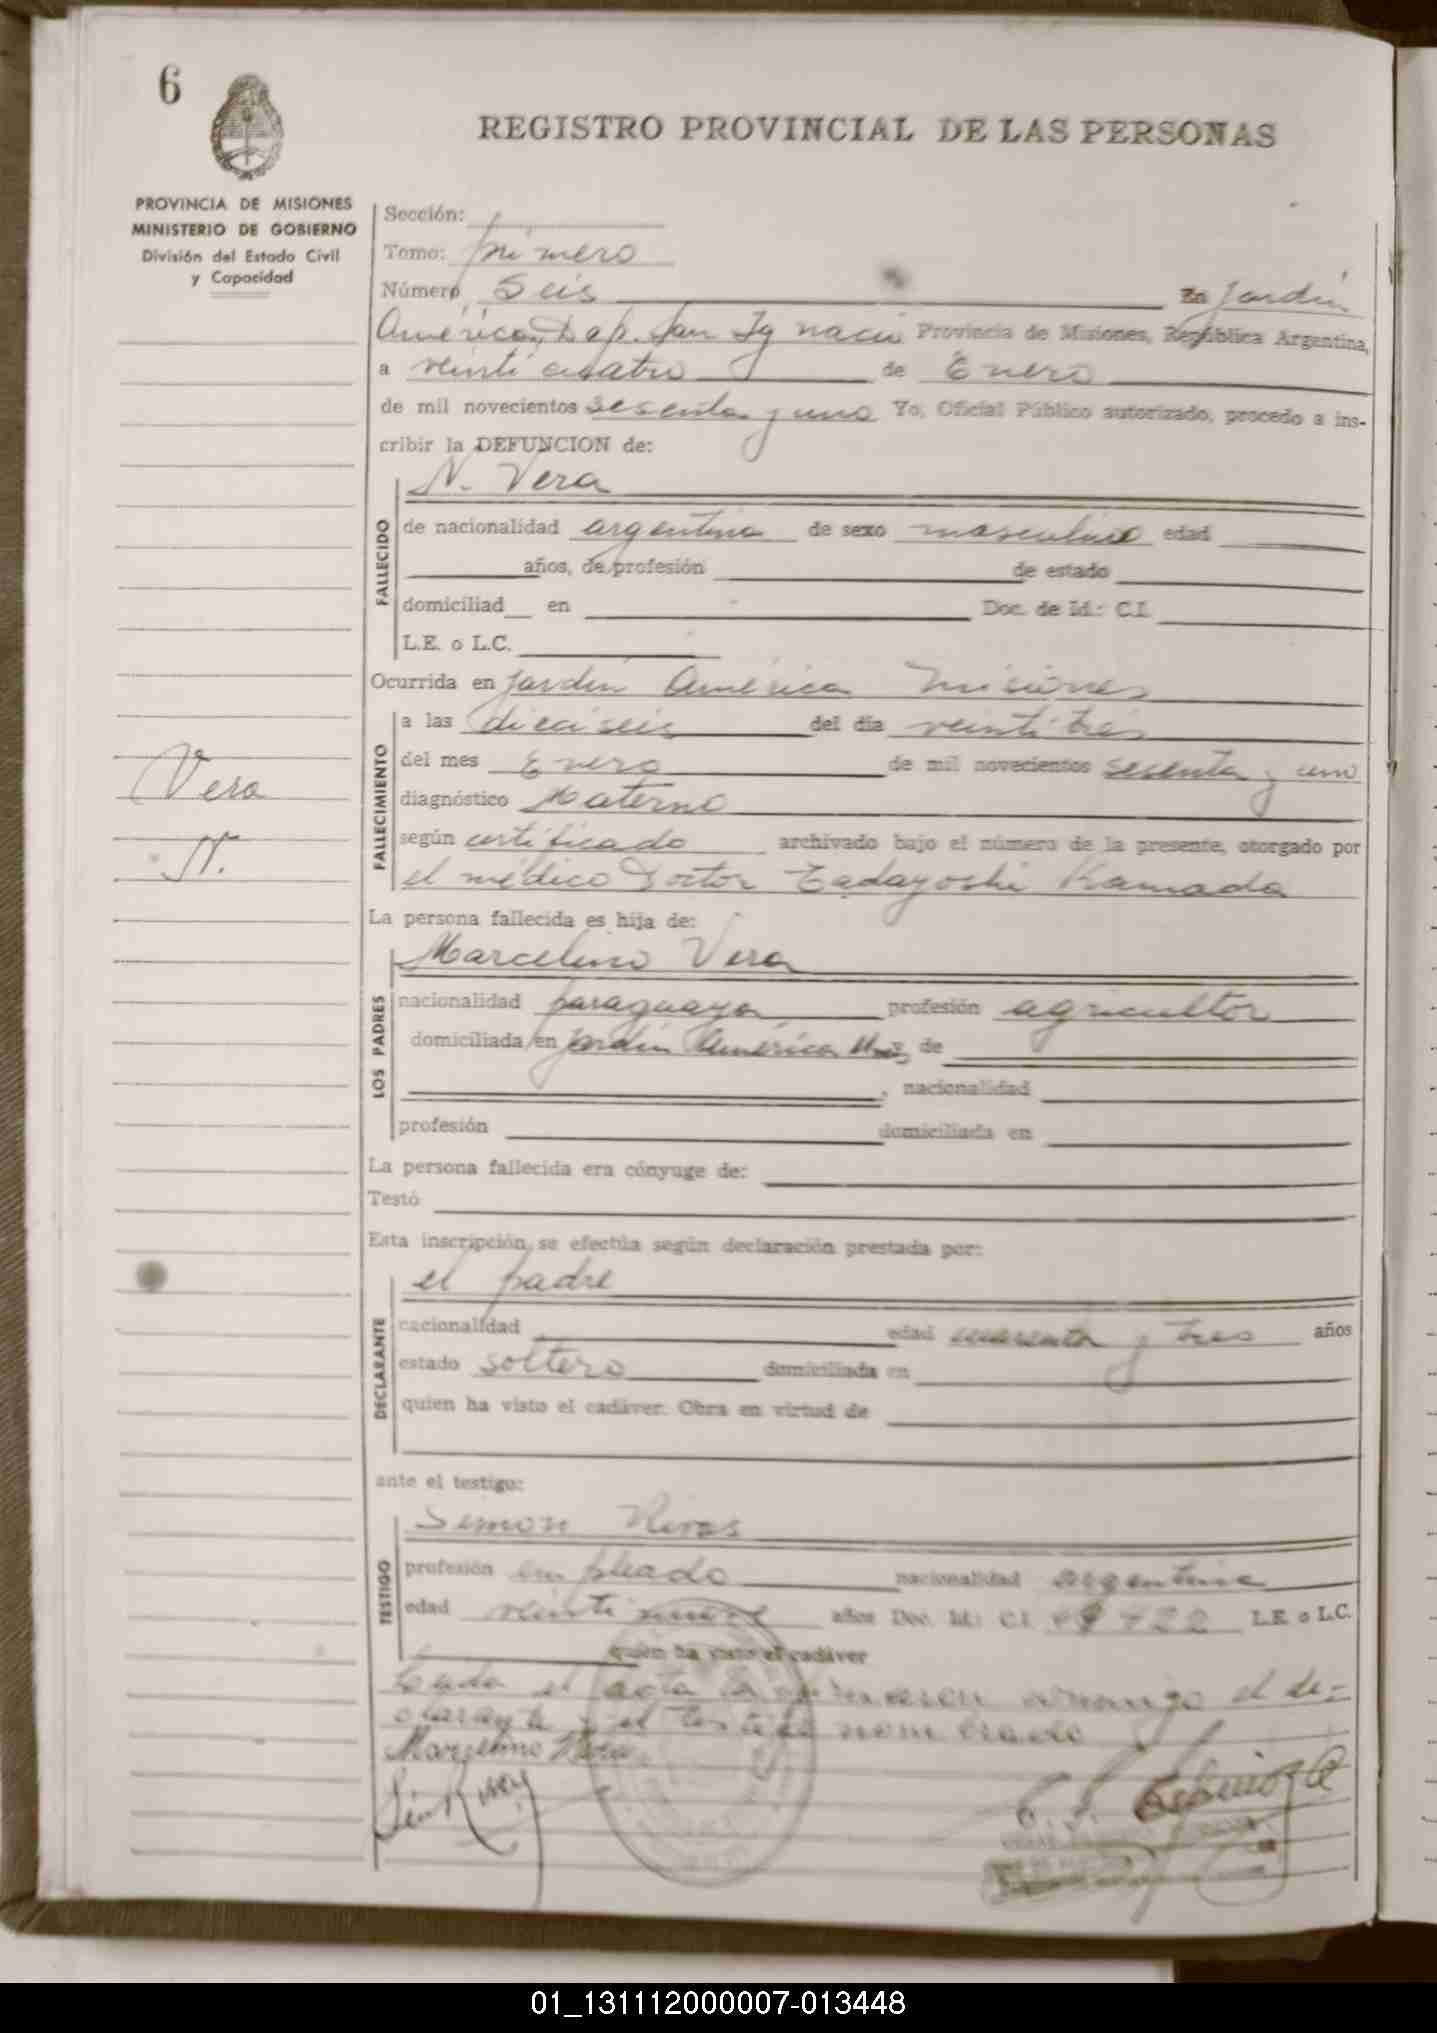 6
REGISTRO PROVINCIAL DE LAS PERSONAS
PROVINCIA DE MISIONES
MINISTERIO DE GOBIERNO
División del Estado Civil
y Capacidad
Sección:
Tomo: primero
Número Seis En Jardin
América, Dep. San Ignacio Provincia de Misiones, República Argentina,
a veinti cuatro de Enero
de mil novecientos sesenta y uno Yo, Oficial Público autorizado, procedo a ins-
cribir la DEFUNCION de:
N. Vera
FALLECIDO
de nacionalidad argentina de sexo masculino edad
años, de profesión de estado
domiciliad en Doc. de Id.: C.I.
L.E. o L.C.
Ocurrida en Jardin América Misiones
FALLECIMIENTO
a las dieciseis del día veintitres
del mes Enero de mil novecientos sesenta y uno
diagnóstico Materno
según certificado archivado bajo el número de la presente, otorgado por
el médico Doctor Tadayoshi Kamada
Vera
N.
La persona fallecida es hija de:
Marcelino Vera
LOS PADRES
nacionalidad paraguaya profesión agricultor
domiciliada en Jardin América de
, nacionalidad
profesión domiciliada en
La persona fallecida era cónyuge de:
Testó
Esta inscripción se efectúa según declaración prestada por:
el padre
DECLARANTE
nacionalidad edad cuarenta y tres años
estado soltero domiciliada en
quien ha visto el cadáver. Obra en virtud de
ante el testigo:
Simon Rivas
TESTIGO
profesión empleado nacionalidad argentina
edad años Doc. Id.: C.I. L.E. o L.C.
quien ha visto el cadáver
Leida el acta la conmigo el de-
clarante y el testigo nombrado
Marcelino Vera
01_131112000007-013448